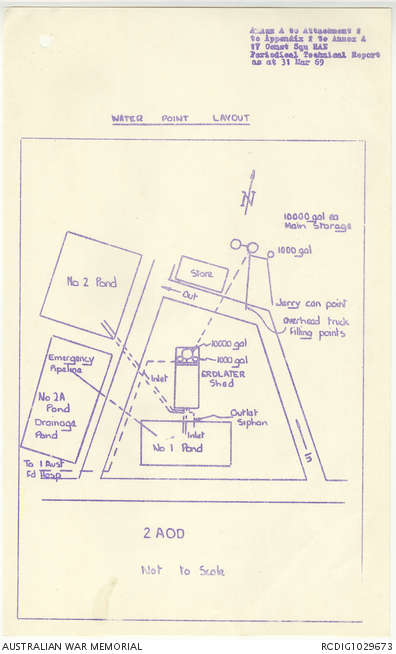 Annex A to Attachment 2
to Appendix 2 to Annex A
17 Const Squ RAE
Periodical Technical Report
as at 31 Mar 69
WATER POINT LAYOUT
N
10000 gal ea
Main Storage
1000 gal
Store
No 2 Pond
Out
Jerry can point
overhead truck
filling points
10000 gal
1000 gal
Emergency
Pipeline
Inlet
ERDLATER
Shed
No 2A
Pond
Drainage
Pond
Outlet
Siphon
Inlet
No 1 Pond
In
To 1 Aust
Fd Hosp
2 AOD
Not to Scale
AUSTRALIAN WAR MEMORIAL
RCDIG1029673